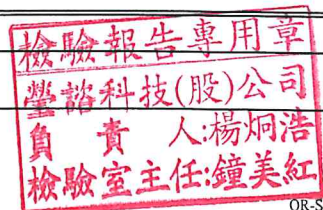 檢驗報告專用章
瑩諮科技(股)公司
負責人:楊炯浩
檢驗室主任:鐘美紅
QR-S